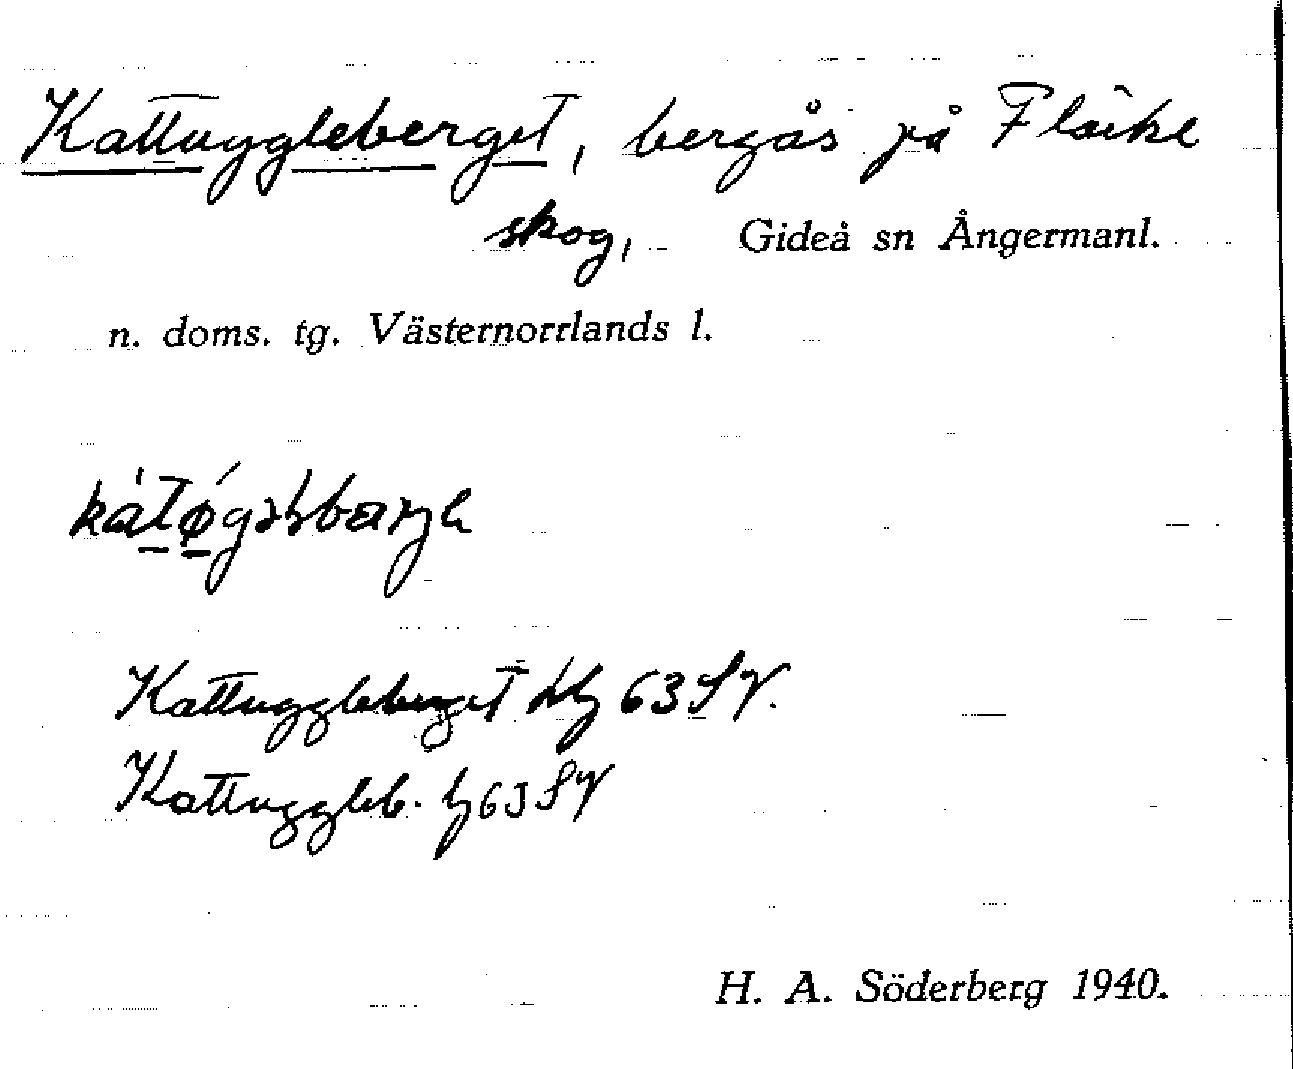 Kattuggleberget, bergås på Fläike
skog, Gideå sn Ångermanl.
n. doms. tg. Västernorrlands l.
Kattuggleberget 63 SV.
Kattuggleb. 63 SV
H. A. Söderberg 1940.